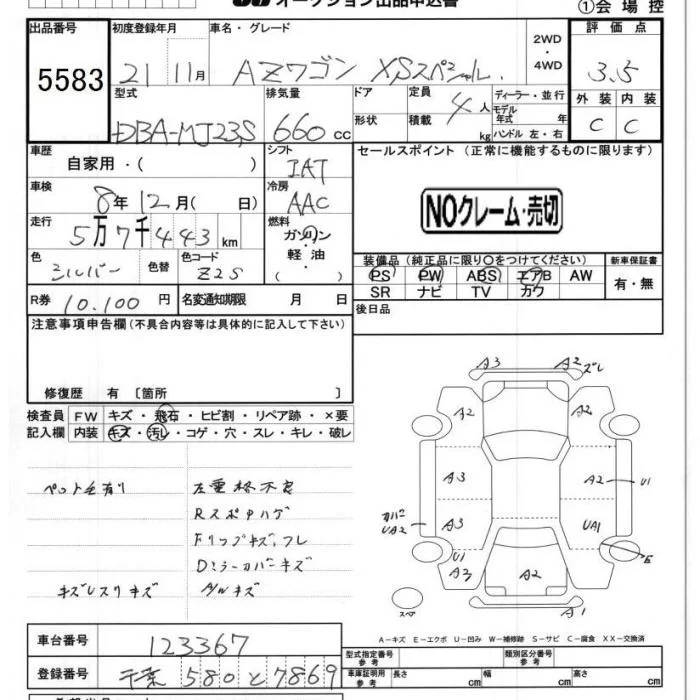 オークション出品申込書
①会場控
出品番号
5583
初度登録年月
21 11月
車名・グレード
AZワゴン XSスペシャル
2WD
・
4WD
評価点
3.5
外装 内装
C C
型式
DBA-MJ23S
排気量
660 cc
ドア
形状
定員
積載
4人
kg
ディーラー・並行
モデル
年式 年
ハンドル 左・右
車歴
自家用・( )
シフト
IAT
セールスポイント (正常に機能するものに限ります)
車検
8年 12月( 日)
冷房
AAC
NOクレーム・売切
走行
5万7千443km
燃料
ガソリン
軽油
( )
色
シルバー
色替
色コード
Z2S
装備品 (純正品に限り○をつけてください)
PS PW ABS エアB AW
SR ナビ TV カワ
新車保証書
有・無
R券 10.100円
名変通知期限 月 日
後日品
注意事項申告欄(不具合内容等は具体的に記入して下さい)
修復歴 有 〔箇所 〕
検査員
記入欄
FW キズ・飛石・ヒビ割・リペア跡・×要
内装 キズ・汚レ・コゲ・穴・スレ・キレ・破レ
ペット毛有り
左重格不良
RスポDハゲ
Fリップキズ、フレ
Dミラーカバーキズ
キズレスリキズ
A3 A2 ズレ
A2 A2
A3 A2 U1
カバー
UA2
A3 UA1
U1
A3 A2
スペア
A1
A-キズ E-エクボ U-凹み W-補修跡 S-サビ C-腐食 XX-交換済
車台番号
123367
登録番号
千葉 580 と 7869
型式指定番号
参考
類別区分番号
参考
車庫証明用
参考
長さ cm
幅 cm
高さ cm